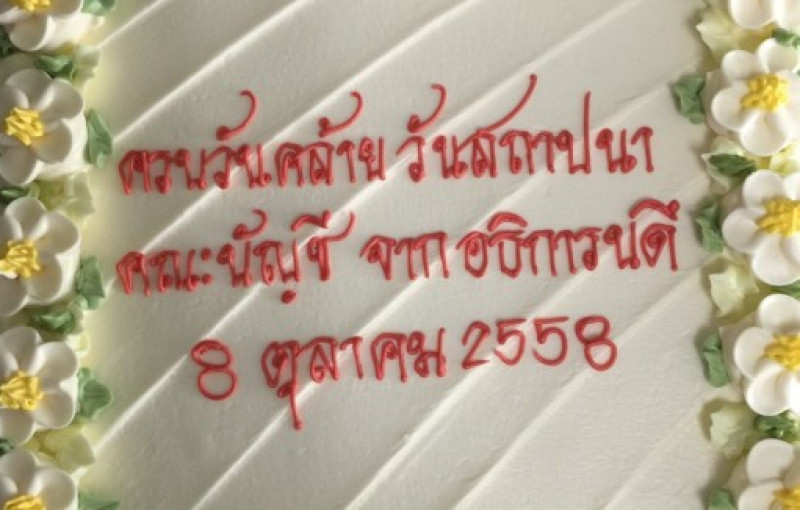 ครบวันคล้าย วันสถาปนา
คณะบัญชี จาก อธิการบดี
8 ตุลาคม 2558